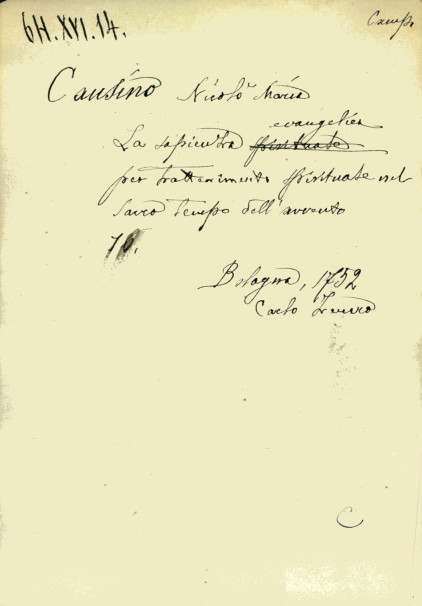 6H.XVI.14.
Causino Nicolò Maria
evangelica
La sapienza spirituale
per trattenimento spirituale nel
sacro tempo dell'avvento
Bologna, 1752
Carlo
C